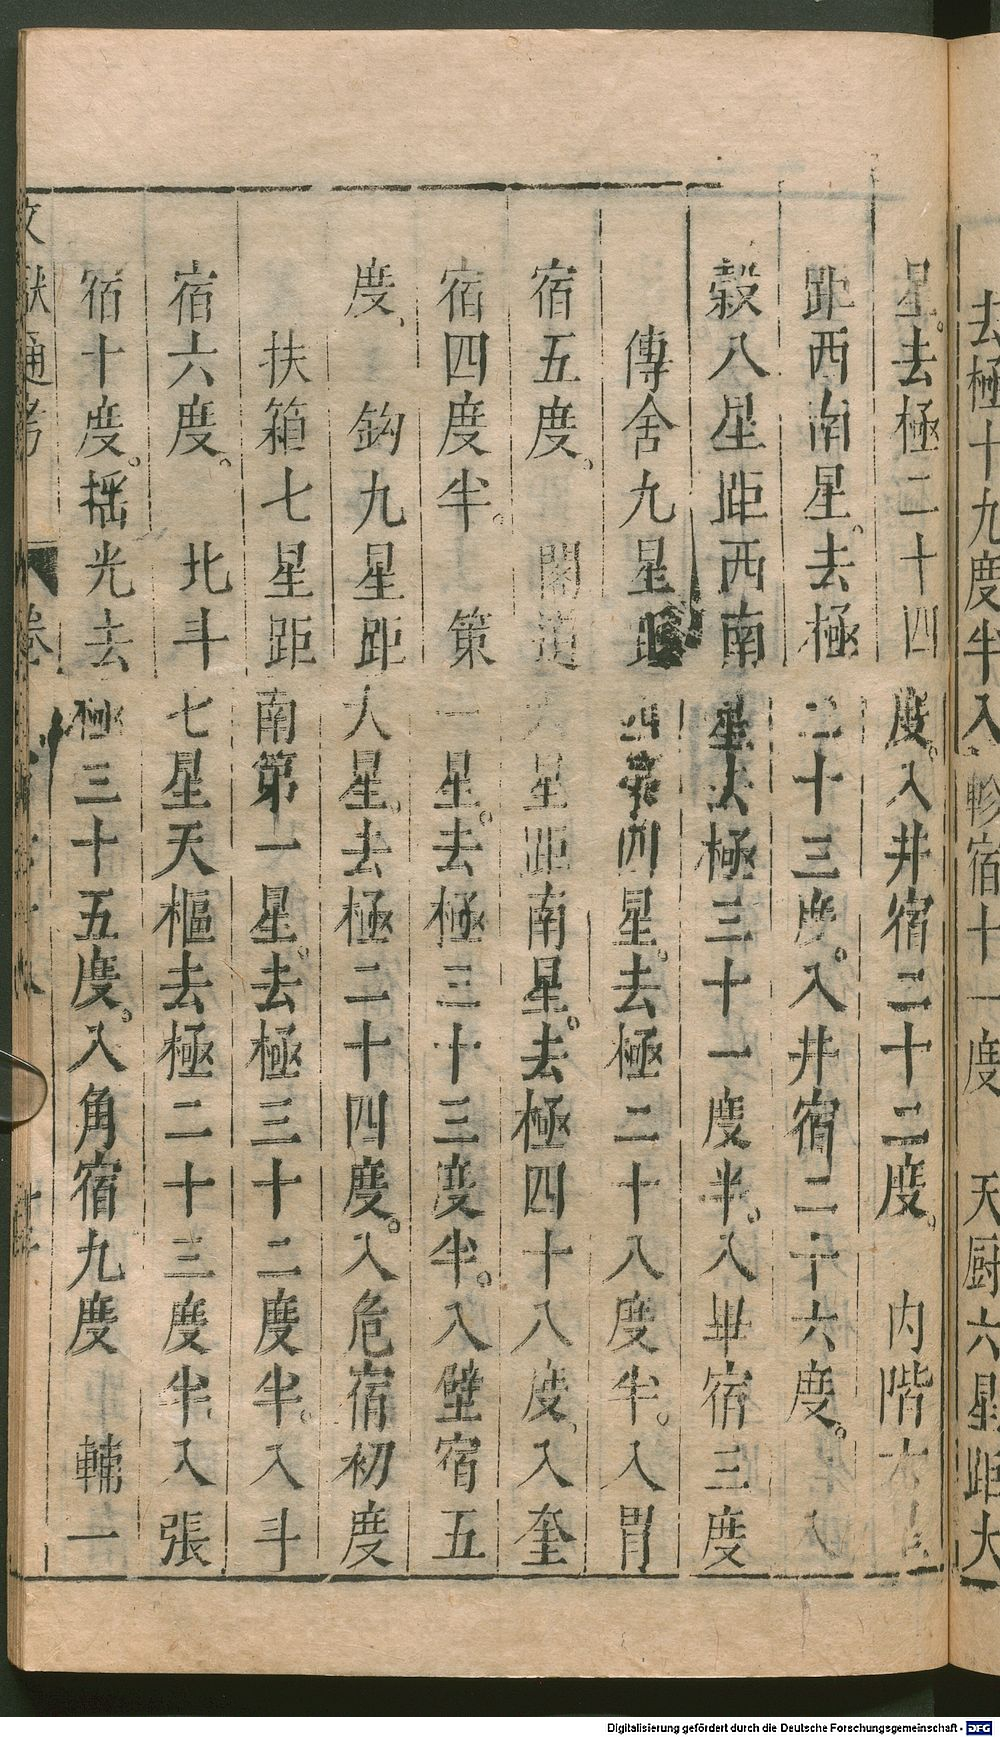 去極十九度半入軫宿十一度　天厨六星距大
星。去極二十四度。入井宿二十二度。　內階六星
距西南星。去極二十三度。入井宿二十六度。　八
穀八星距西南星去極三十一度半。入畢宿三度
傳舍九星距西第四星。去極二十八度半。入胃
宿五度。　閣道六星距南星。去極四十八度、入奎
宿四度半。　策一星。去極三十三度半。入壁宿五
度、　鈎九星距大星。去極二十四度。入危宿初度
扶箱七星距南第一星。去極三十二度半。入斗
宿六度。　北斗七星天樞去極二十三度半入張
宿十度。搖光去極三十五度。入角宿九度　輔一
文獻通考　卷
Digitalisierung gefördert durch die Deutsche Forschungsgemeinschaft - DFG